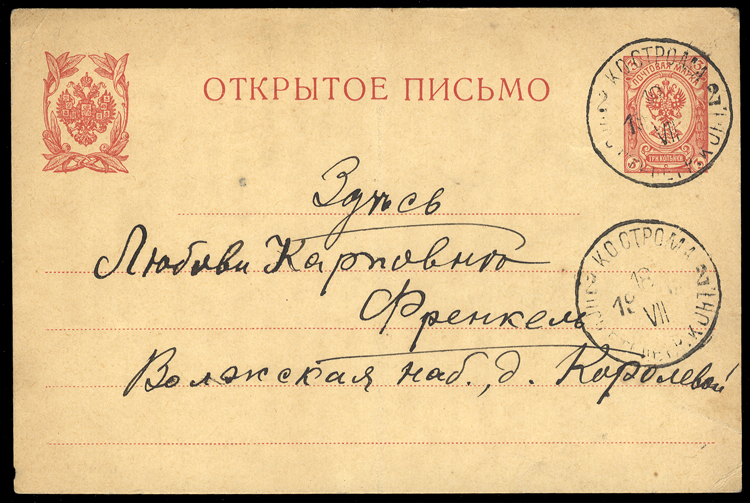 ОТКРЫТОЕ ПИСЬМО
ПОЧТОВАЯ МАРКА
ТРИ КОПѢЙКИ
КОСТРОМА
VII
Здѣсь
Любови Карповнѣ
Френкель
КОСТРОМА
18
19
VII
Волжская наб., д. Королевой